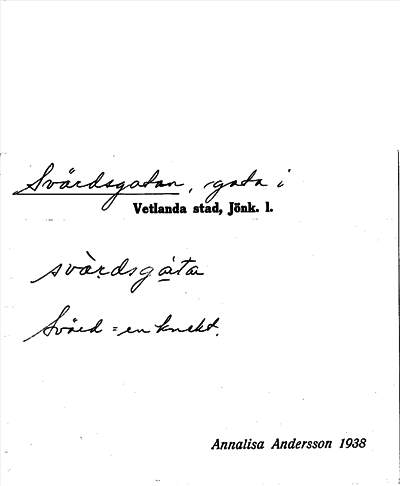 Svärdsgatan, gata i
Vetlanda stad, Jönk. l.
svä̀rdsgáta
Svärd = en knekt.
Annalisa Andersson 1938